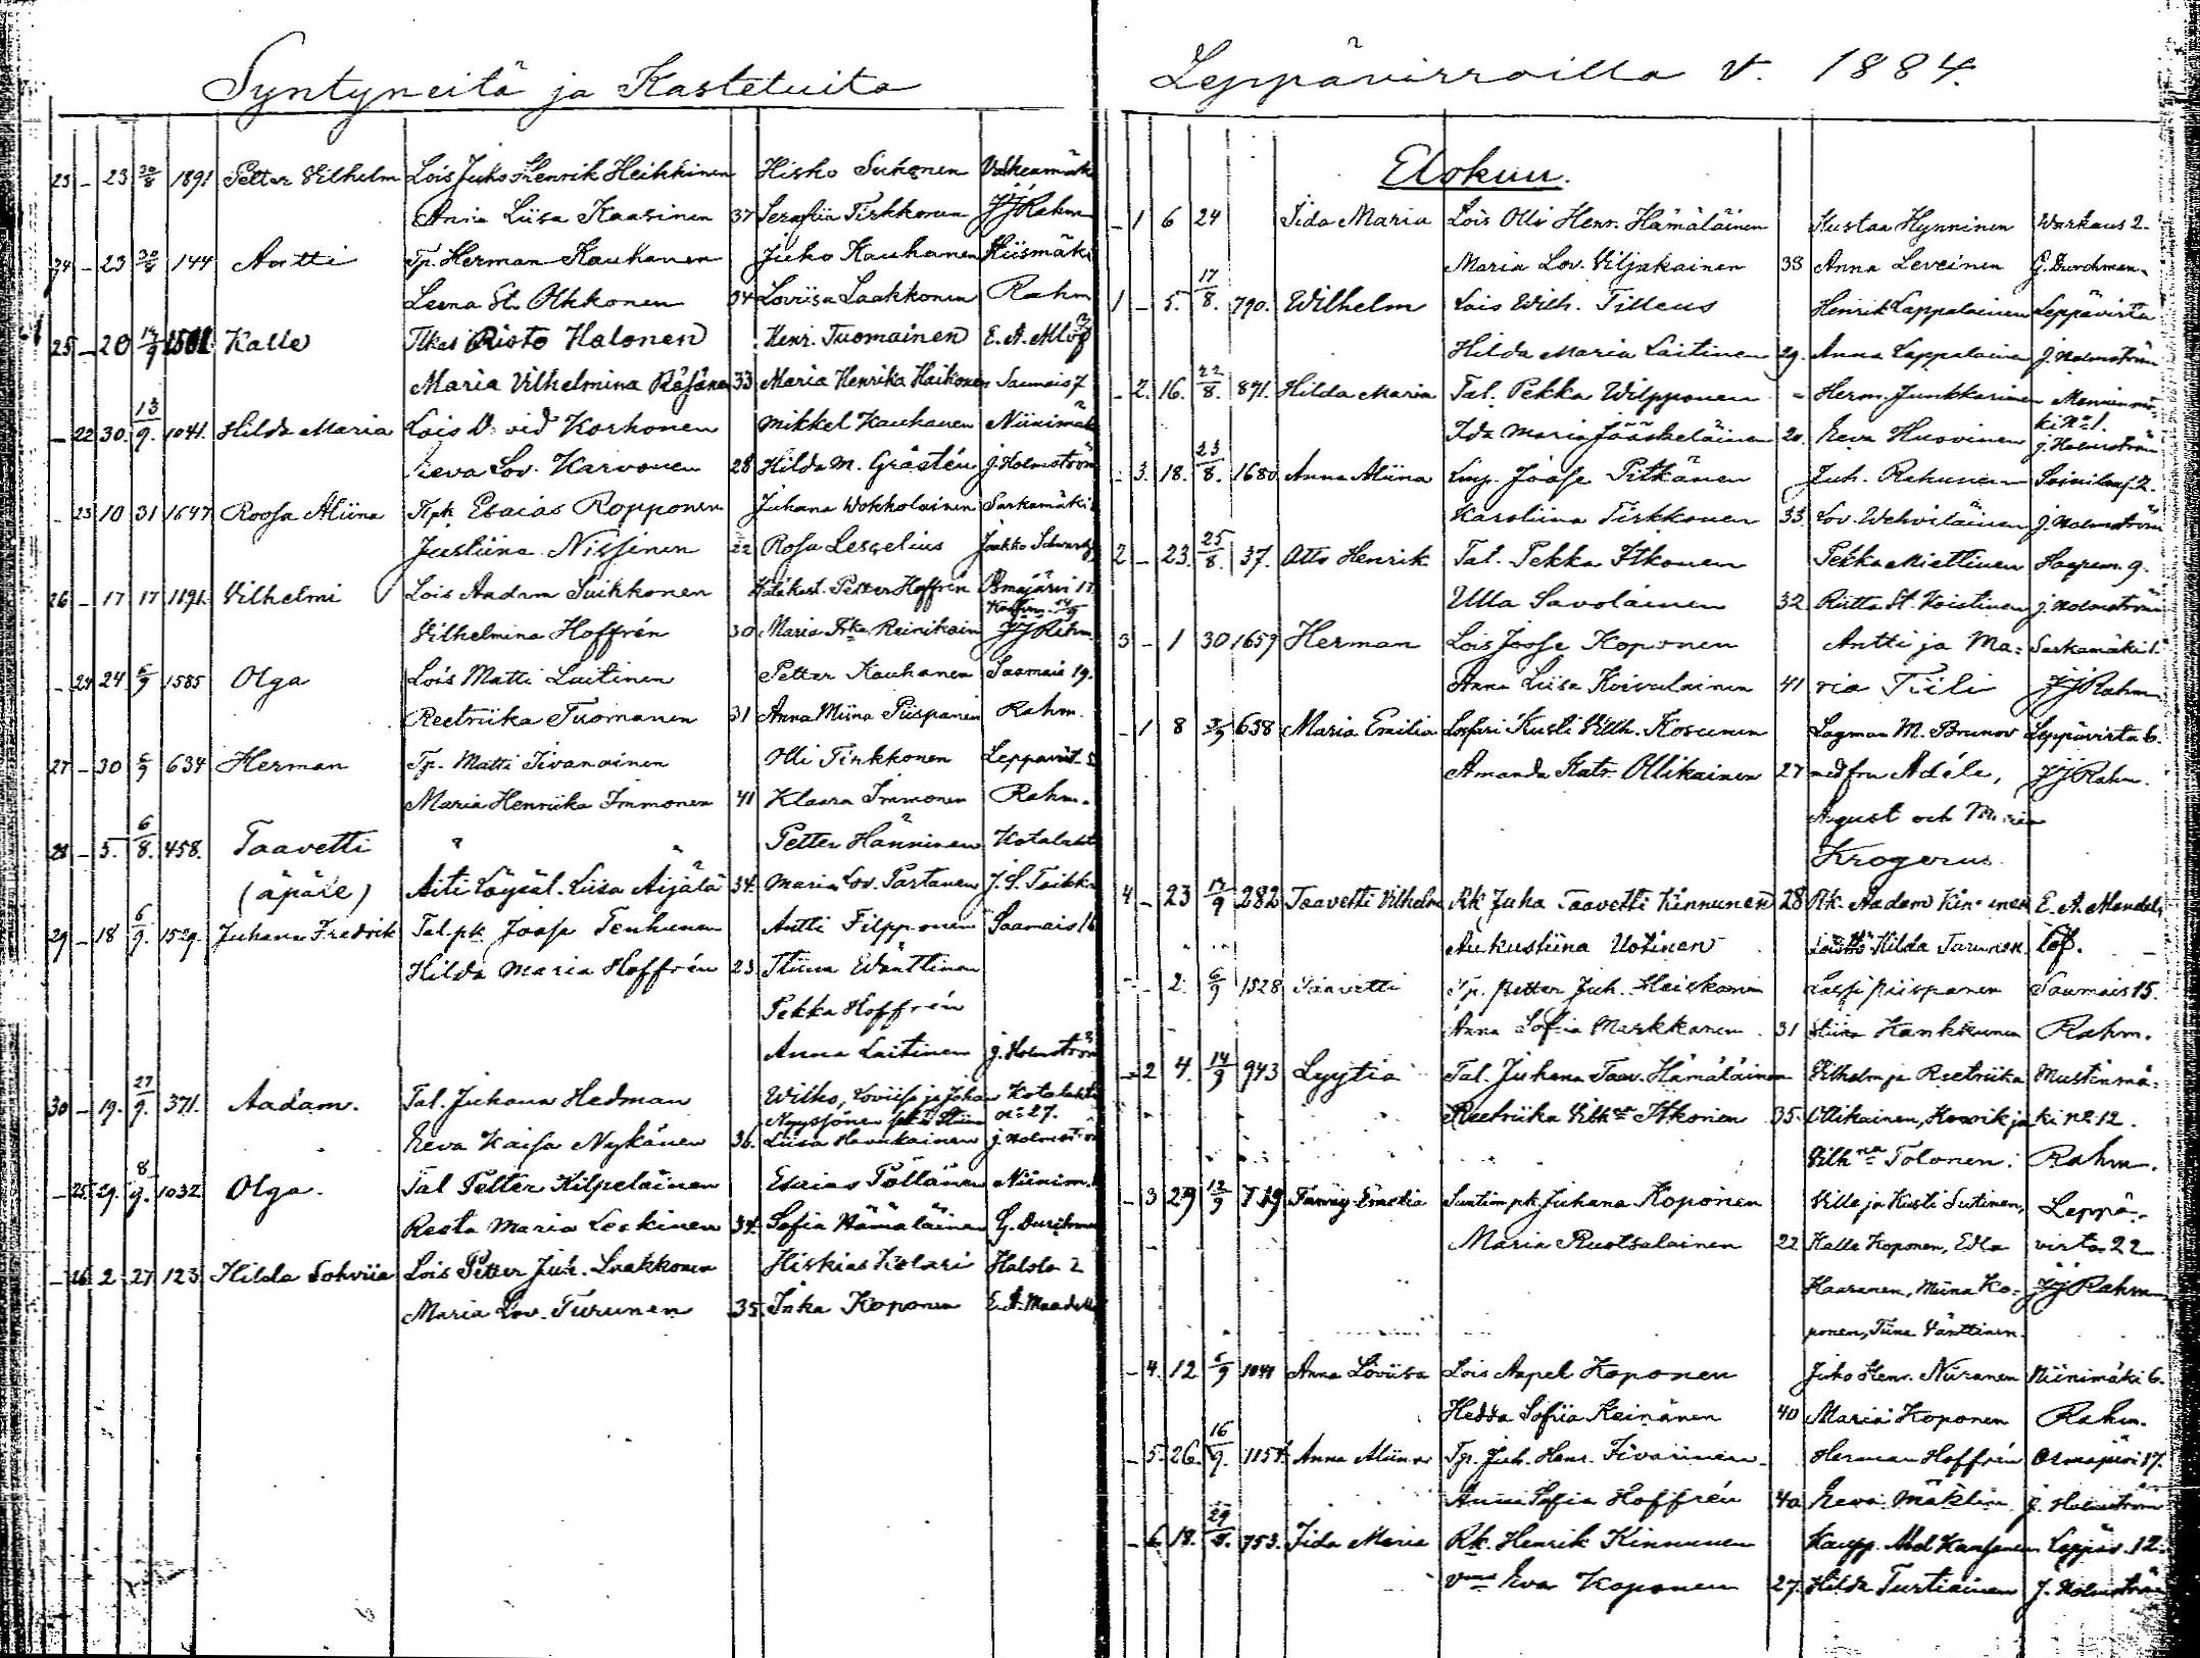 Syntyneitä ja Kastetuita
23 – 23 30/8 1891 Petter Vilhelm Lois Juho Henrik Heikkinen Hisko Suhonen
Anna Liisa Kaasinen 37 Serafiia Tirkkonen JJRahm
24 – 23 30/8 144 Antti Tp. Herman Kauhanen Juho Kauhanen Hiismäki
Leena St. Olkkonen 34 Loviisa Laakkonen Rahm
25 – 20 14/9 1501 Kalle Risto Halonen Henr. Tuomainen E. A.
Maria Vilhelmina Räsänen 33 Maria Henrika Haikonen Saamais 7
– 22 30. 13/9. 1041. Hilda Maria Lois D vid Korhonen Mikkel Kauhanen Niinimäk
Eeva Lov. Karvonen 28 Hilda M. Grästén J. Holmström
– 23 10 31 1647 Roosa Aliina Esaias Ropponen Juhana Sarkamäki
Justiina Nissinen 22 Rosa Lescelius Jaakko Schwartz
26 – 17 17 1191. Vilhelmi Lois Aadam Suihkonen Petter Hoffrén Osmajärvi 17
Vilhelmina Hoffrén 30 Maria Reinikain JJRahm
– 24 24 6/9 1585 Olga Lois Matti Laitinen Petter Kauhanen Saamais 19.
Reetriika Tuomanen 31 Anna Miina Piispanen Rahm.
27 – 30 6/9 634 Herman Tp. Matti Iivanainen Olli Tirkkonen Leppävirt. 5
Maria Henriika Immonen 41 Klaara Immonen Rahm.
28 – 5. 6/8. 458. Taavetti ? Petter Hänninen Kotalaht
(äpäre) Äiti Löysäl. Liisa Äijälä 34. Maria Lov. Partanen J. S. Toikka
29 – 18 6/9. 1529. Juhana Fredrik Tal.pk. Joosa Tenhunen Antti Filpponen Saamais 16
Hilda Maria Hoffrén 23 Stiina Wänttinen
Pekka Hoffrén
Anna Laitinen J. Holmström
30 – 19. 27/9. 371. Aadam. Tal. Juhana Hedman Wilho, Loviisa ja Johan Kotalahti
Nyyssönen n:o 27.
Eeva Kaisa Nykänen 36. Liisa Haukkainen J. Holmström
– 25 29. 8/9. 1032 Olga. Tal Petter Kilpeläinen Esaias Pöllänen Niinim.
Reeta Maria Leskinen 34. Sofia Hämäläinen G. Durchman
– 26 2 27 123 Hilda Sohviia Lois Petter Juh. Laakkonen Hiskias Kolari Halola 2
Maria Lov. Turunen 35. Inka Koponen E. A. Mandell
Leppävirroilla v. 1884.
Elokuu.
– 1 6 24 Iida Maria Lois Olli Henr. Hämäläinen Kustaa Hynninen Warkaus 2.
Maria Lov. Viljakainen 33 Anna Leveinen G. Durchman.
1 – 5. 17/8. 790. Wilhelm Lois Wilh. Tilleus Henrik Lappalainen Leppävirta
Hilda Maria Laitinen 29. Anna Lappalainen J. Holmström
– 2. 16. 22/8. 871. Hilda Maria Tal. Pekka Wilpponen Herm. Junkkarinen
Ida Maria Jääskeläinen 20. Eeva Huovinen J. Holmström
– 3. 18. 23/8. 1680. Anna Aliina Joose Pitkänen Juh. Rahunen
Karoliina Tirkkonen 33. Lov. Wehviläinen J. Holmström
2 – 23. 25/8. 37. Otto Henrik Tal. Pekka Itkonen Pekka Miettinen Haapam. 9.
Ulla Savolainen 32 Riitta St. Koistinen J. Holmström
3 – 1 30 1659 Herman Lois Joose Koponen Antti ja Ma= Sarkamäki 1.
Anna Liisa Koivulainen 41 ria Tiili JJRahm
– 1 8 638 Maria Emilia Kusti Vilh. Kosunen Lagman M. Brunov Leppävirta 6.
Amanda Katr. Ollikainen 27 med fru Adéle, JJRahm.
August och Maria
Krogerus.
4 – 23 14/9 282 Taavetti Vilhelm Rk Juha Taavetti Kinnunen 28 Rk. Aadam Kin nen E. A. Mandel=
Aukustiina Uotinen Hilda Tarunen. löf.
– 2. 6/9 1528 Taavetti Tp. Petter Juh. Heiskanen Lassi Piispanen Saamais 15.
Anna Sofia Markkanen 31 Stiina Kankkunen Rahm.
– 2 4. 14/9 943 Lyytia Tal. Juhana Taav. Hämäläinen Vilhelm ja Reetriika Mustinmä=
Reetriika Vilh:na Itkonen 35. Ollikainen, Henrik ja ki n:o 12.
Vilh:na Tolonen. Rahm.
– 3 29 12/9 Fanny Emelia pk. Juhana Koponen Ville ja Kusti Sutinen, Leppä-
Maria Ruotsalainen 22 Kalle Koponen, Edla virta 22
Kaaranen, Miina Ko= JJRahm
ponen, Tiina Vänttinen.
– 4. 12 5/9 1041 Anna Loviisa Lois Aapel Koponen Juho Henr. Niiranen Niinimäki 6.
Hedda Sofiia Keinänen 40 Maria Koponen Rahm.
– 5. 26. 16/9. 1154. Anna Aliina Tp. Juh. Henr. Iivarinen Herman Hoffrén Osmajärvi 17.
Anna Sofia Hoffrén 40 Eeva Mäklin J. Holmström
– 6 18. 29/8. 753. Iida Maria Rk. Henrik Kinnunen Kaupp. Abel Leppäv. 12.
Eva Koponen 27. Hilda Turtiainen J. Holmström